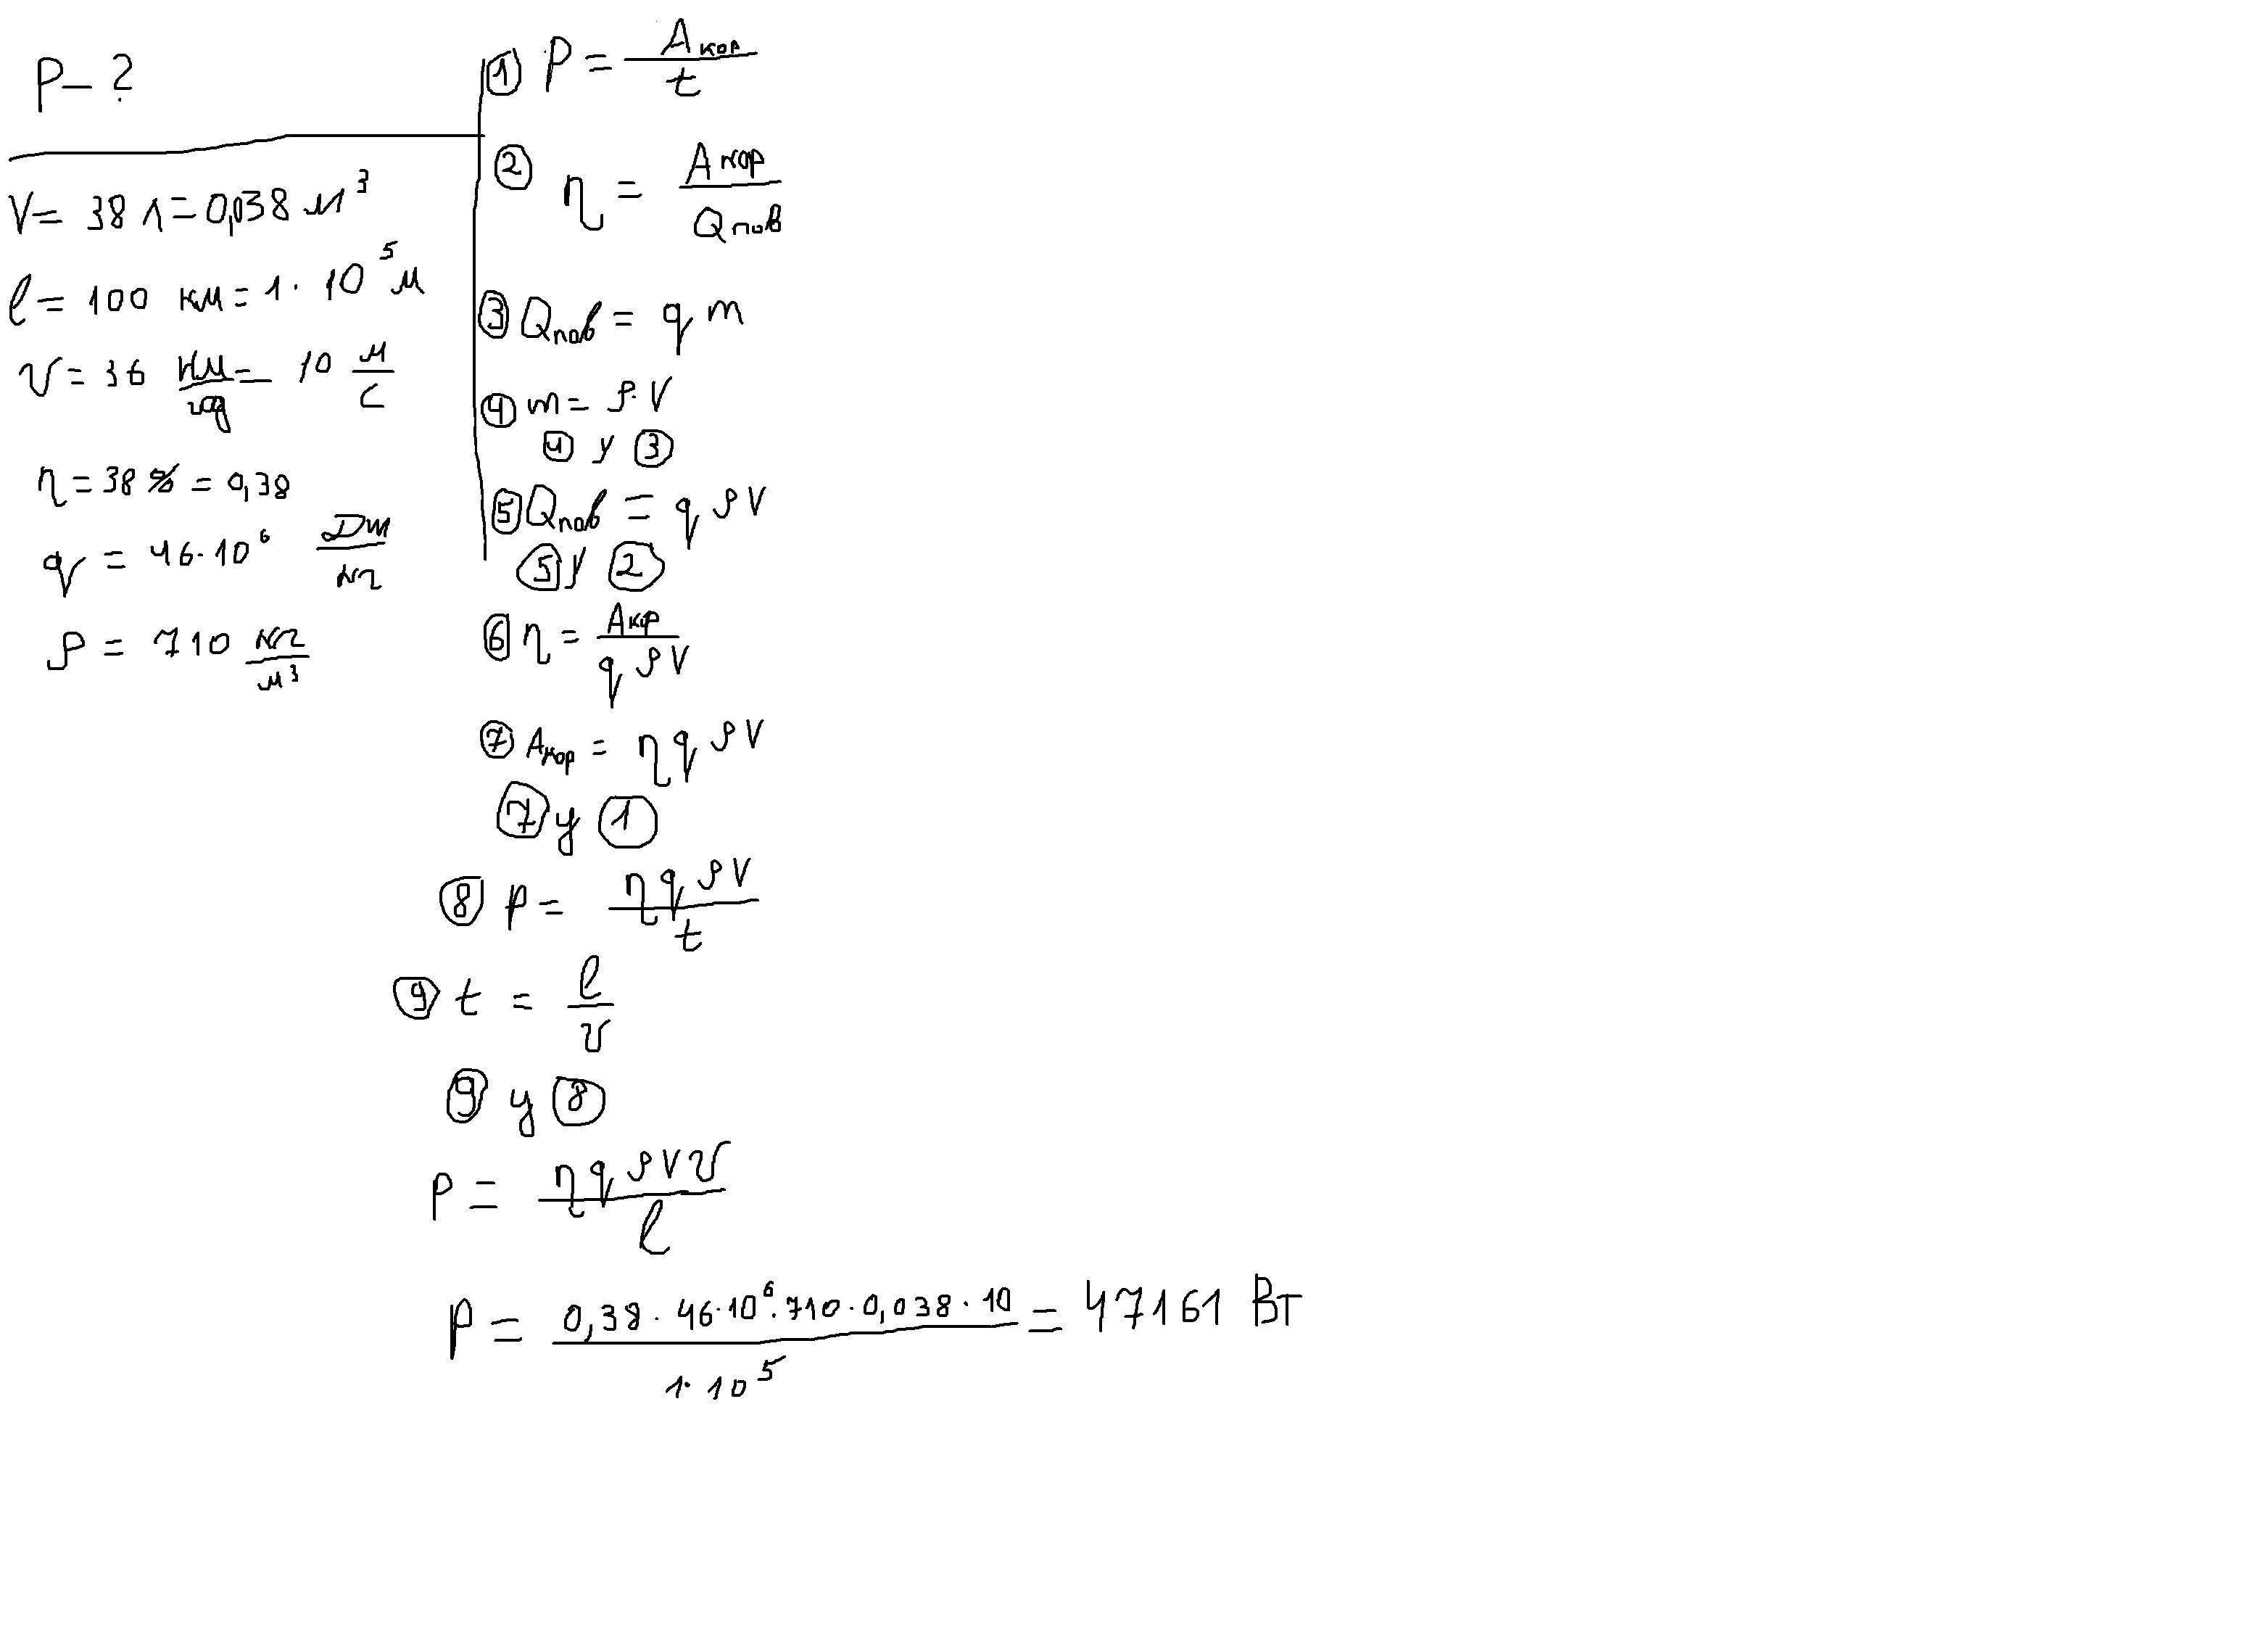 P – ?
V = 38 л = 0,038 м³
l = 100 км = 1 · 10⁵ м
v = 36 км/год = 10 м/с
η = 38 % = 0,38
q = 46 · 10⁶ Дж/кг
ρ = 710 кг/м³
① P = Aкор / t
② η = Aкор / Qпов
③ Qпов = q m
④ m = ρ · V
④ у ③
⑤ Qпов = q ρ V
⑤ у ②
⑥ η = Aкор / q ρ V
⑦ Aкор = η q ρ V
⑦ у ①
⑧ P = η q ρ V / t
⑨ t = l / v
⑨ у ⑧
P = η q ρ V v / l
P = 0,38 · 46 · 10⁶ · 710 · 0,038 · 10 / 1 · 10⁵ = 47161 Вт